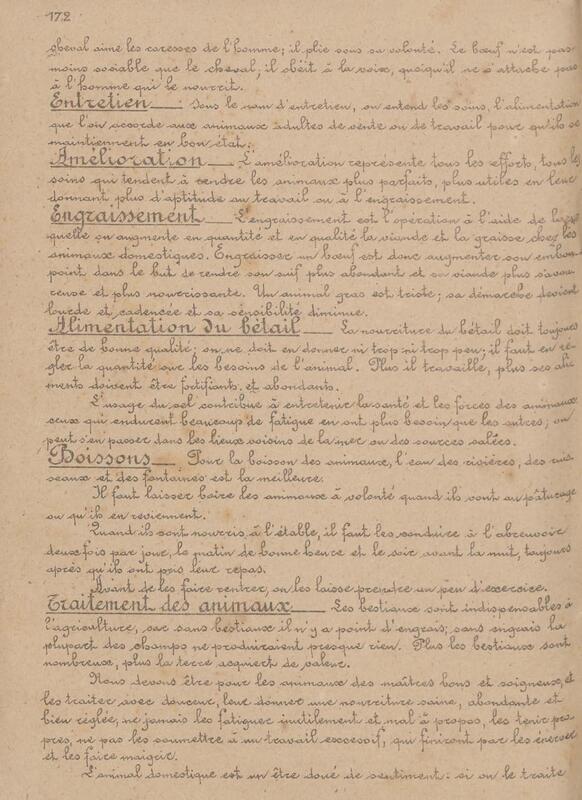 172
cheval aime les caresses de l'homme; il plie sous sa volonté. Le bœuf n'est pas
moins sociable que le cheval; il obéit à la voix, quoiqu'il ne s'attache pas
à l'homme qui le nourrit.
Entretien ___ Sous le nom d'entretien, on entend les soins, l'alimentation
que l'on accorde aux animaux adultes de vente ou de travail pour qu'ils se
maintiennent en bon état.
Amélioration ___ L'amélioration représente tous les efforts, tous les
soins qui tendent à rendre les animaux plus parfaits, plus utiles en leur
donnant plus d'aptitude au travail ou à l'engraissement.
Engraissement ___ L'engraissement est l'opération à l'aide de la-
quelle on augmente en quantité et en qualité la viande et la graisse chez les
animaux domestiques. Engraisser un bœuf est donc augmenter son embon-
point dans le but de rendre son suif plus abondant et sa viande plus savou-
reuse et plus nourrissante. Un animal gras est triste; sa démarche devient
lourde et cadencée et sa sensibilité diminue.
Alimentation du bétail ___ La nourriture du bétail doit toujours
être de bonne qualité; on ne doit en donner ni trop ni trop peu; il faut en ré-
gler la quantité sur les besoins de l'animal. Plus il travaille, plus ses ali-
ments doivent être fortifiants et abondants.
L'usage du sel contribue à entretenir la santé et les forces des animaux
ceux qui endurent beaucoup de fatigue en ont plus besoin que les autres; on
peut s'en passer dans les lieux voisins de la mer ou des sources salées.
Boissons ___ Pour la boisson des animaux, l'eau des rivières, des ruis-
seaux et des fontaines est la meilleure.
Il faut laisser boire les animaux à volonté quand ils vont au pâturage
ou qu'ils en reviennent.
Quand ils sont nourris à l'étable, il faut les conduire à l'abreuvoir
deux fois par jour, le matin de bonne heure et le soir avant la nuit, toujours
après qu'ils ont pris leur repas.
Avant de les faire rentrer, on les laisse prendre un peu d'exercice.
Traitement des animaux ___ Les bestiaux sont indispensables à
l'agriculture, car sans bestiaux il n'y a point d'engrais; sans engrais la
plupart des champs ne produiraient presque rien. Plus les bestiaux sont
nombreux, plus la terre acquiert de valeur.
Nous devons être pour les animaux des maîtres bons et soigneux, et
les traiter avec douceur, leur donner une nourriture saine, abondante et
bien réglée, ne jamais les fatiguer inutilement et mal à propos, les tenir pro-
pres, ne pas les soumettre à un travail excessif, qui finiront par les énerver
et les faire maigrir.
L'animal domestique est un être doué de sentiment: si on le traite